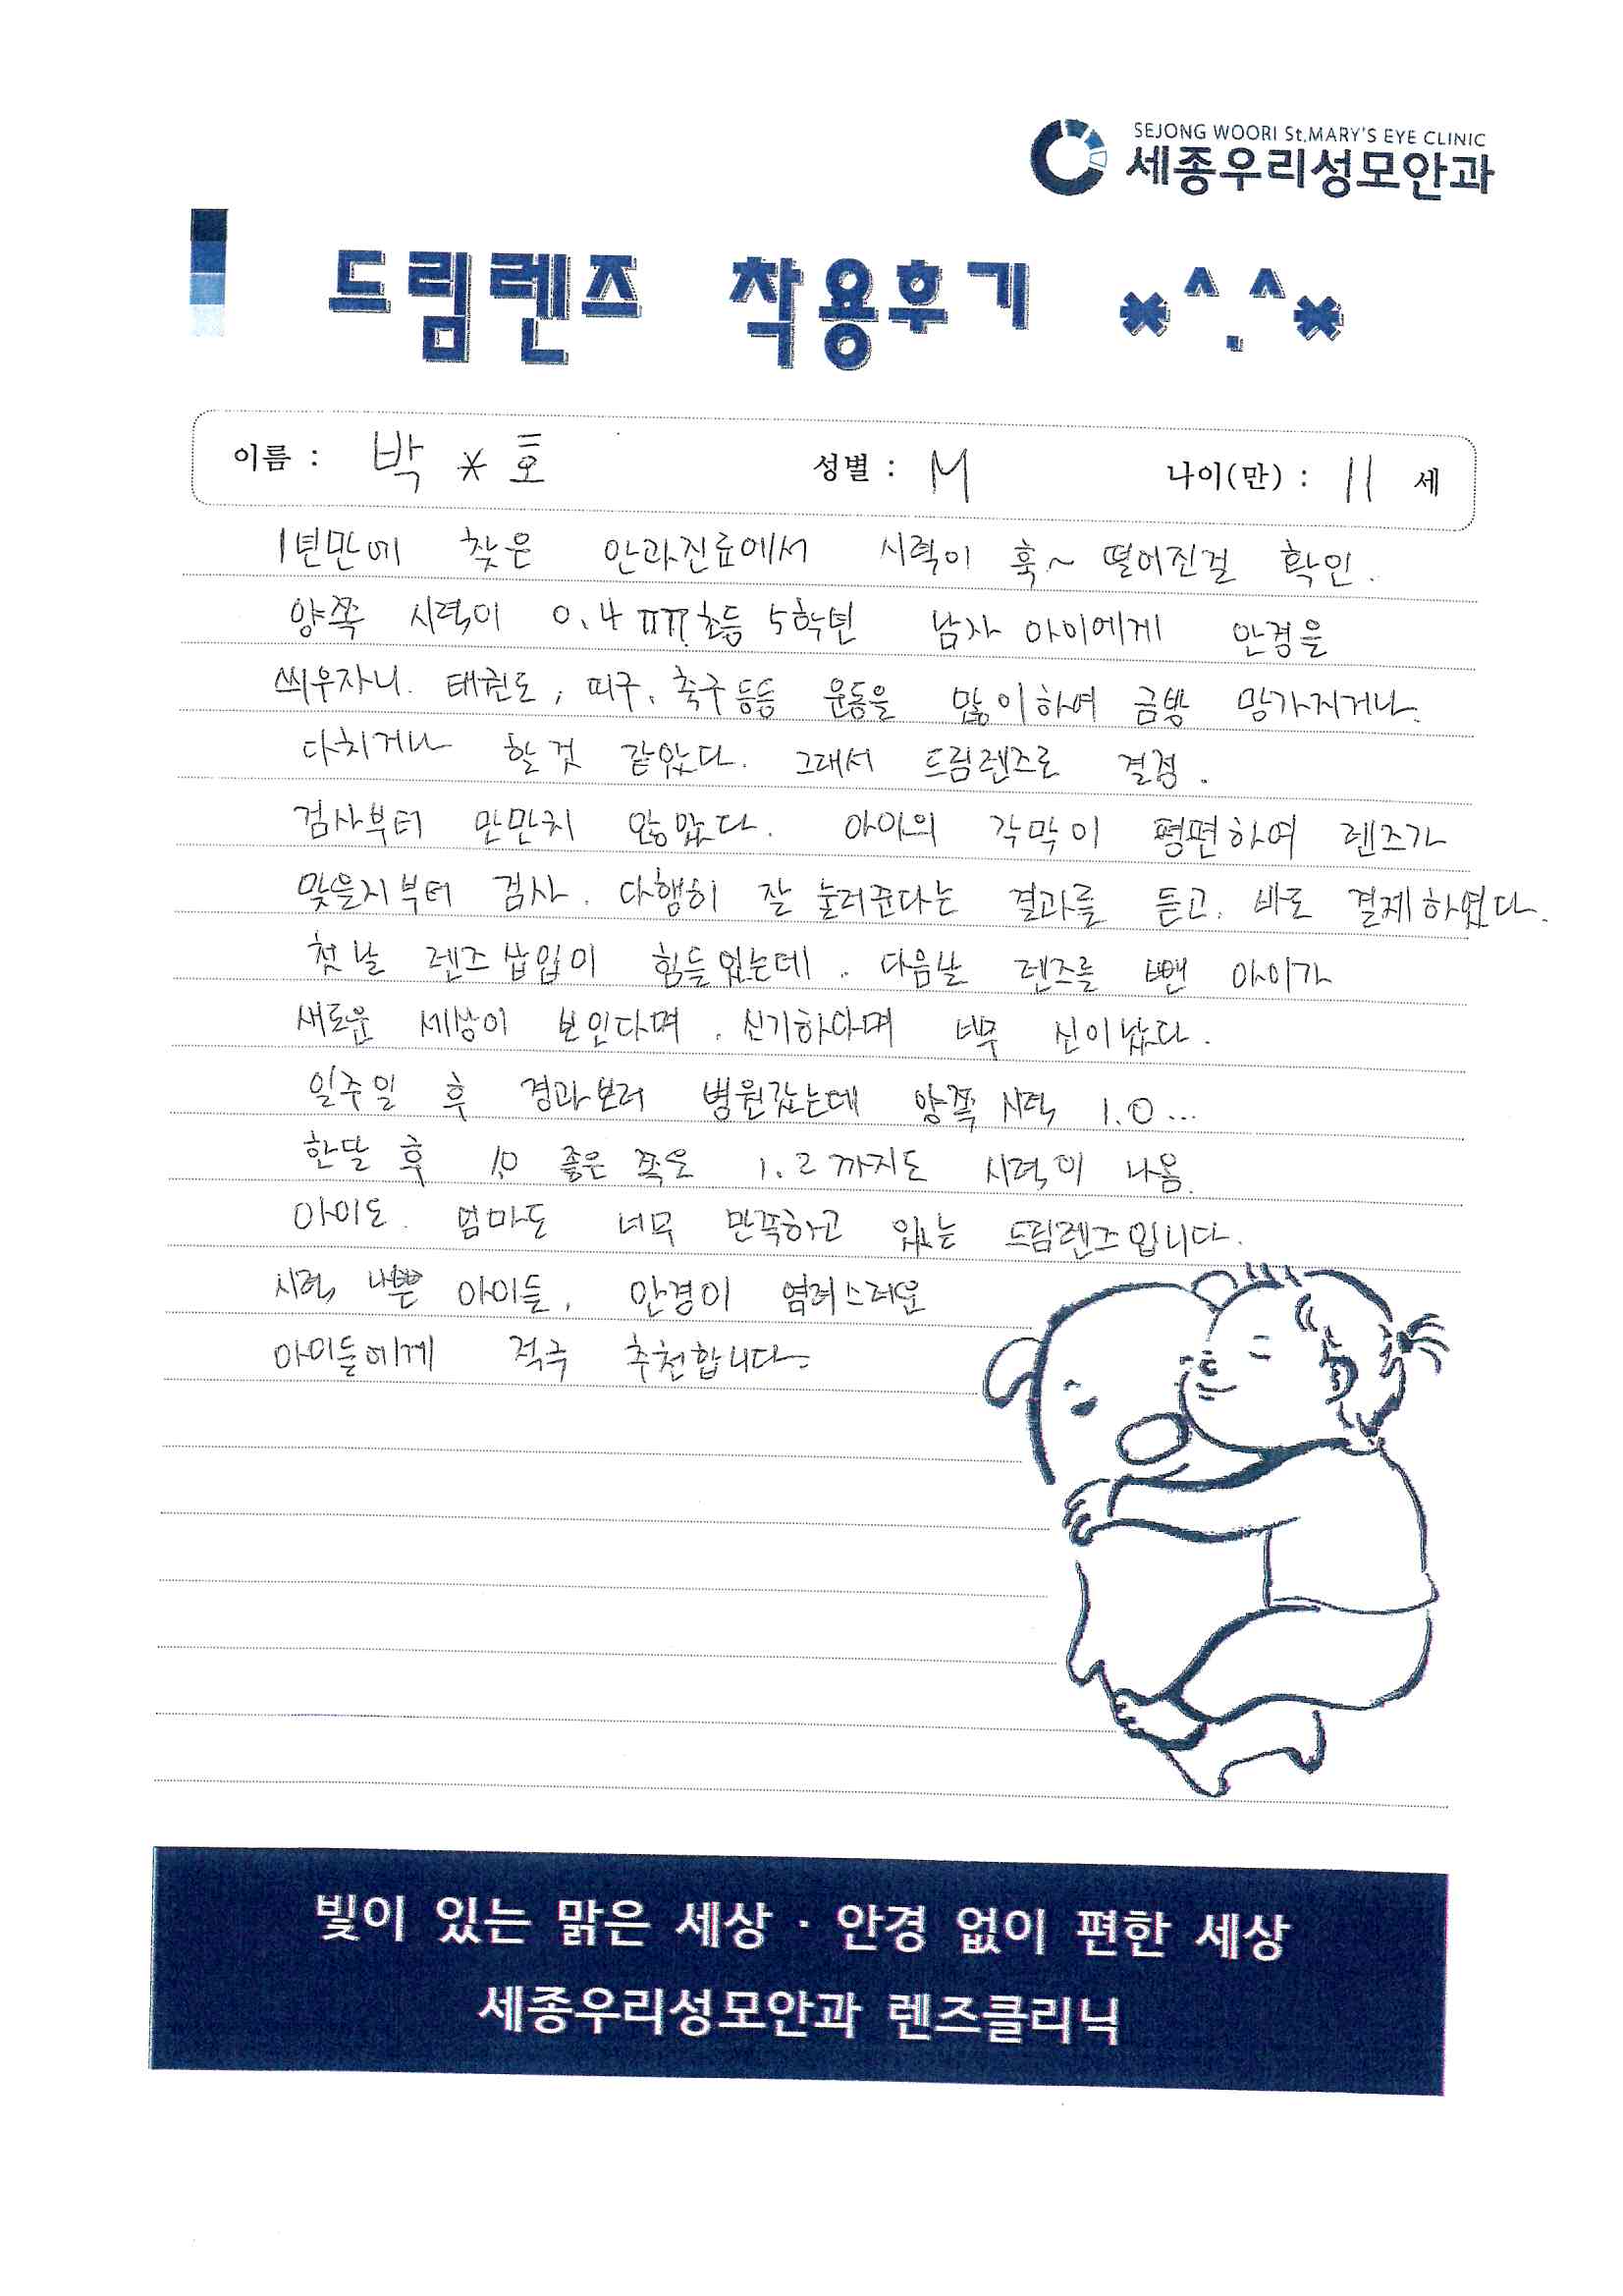 SEJONG WOORI St.MARY'S EYE CLINIC
세종우리성모안과
드림렌즈 착용후기 *^.^*
이름 : 박 * 호 성별 : M 나이(만) : 11 세
1년만에 찾은 안과진료에서 시력이 훅~ 떨어진걸 확인.
양쪽 시력이 0.4 ㅠㅠ. 초등 5학년 남자 아이에게 안경을
씌우자니. 태권도, 피구, 축구 등등 운동을 많이하여 금방 망가지거나.
다치거나 할 것 같았다. 그래서 드림렌즈로 결정.
검사부터 만만치 않았다. 아이의 각막이 평편하여 렌즈가
맞을지부터 검사. 다행히 잘 눌러준다는 결과를 듣고. 바로 결제하였다.
첫날 렌즈삽입이 힘들었는데. 다음날 렌즈를 뺀 아이가
새로운 세상이 보인다며. 신기하다며 너무 신이났다.
일주일 후 경과보러 병원갔는데 양쪽 시력 1.0...
한달 후 1.0 좋은 쪽은 1.2까지도 시력이 나옴.
아이도. 엄마도 너무 만족하고 있는 드림렌즈입니다.
시력 나쁜 아이들, 안경이 염려스러운
아이들에게 적극 추천합니다.
빛이 있는 맑은 세상 · 안경 없이 편한 세상
세종우리성모안과 렌즈클리닉